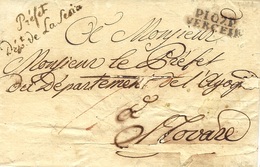 Préfet
Dépt de La Sesia
P102P
VERCEIL
A Monsieur
Monsieur le Préfet
du Département de l'Agog
à
Novare